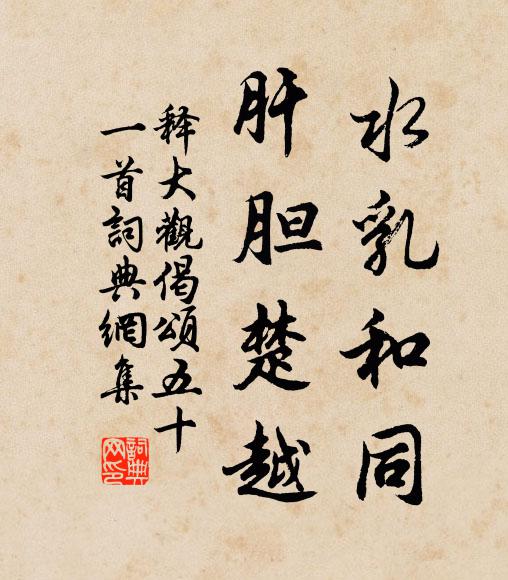 水乳和同
肝胆楚越
释大觀偈頌五十
一首詞典網集
詞典
网印